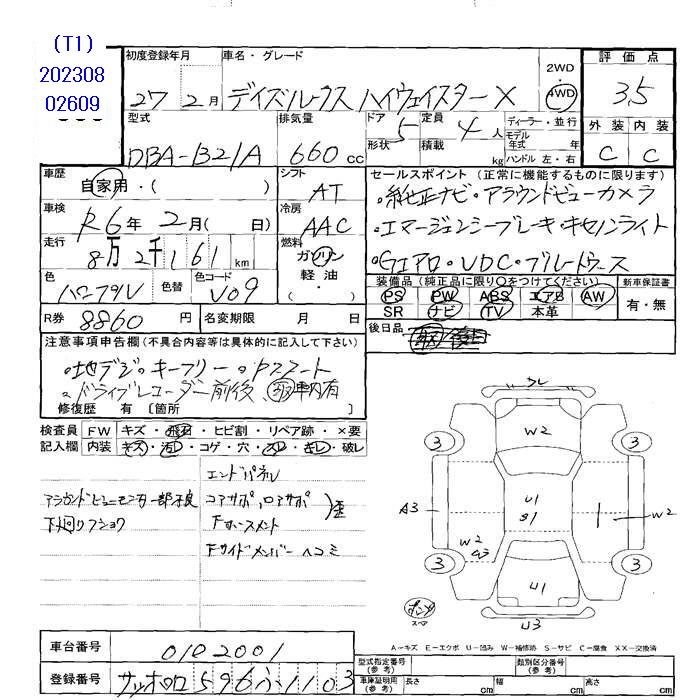 (T1)
202308
02609
初度登録年月
車名・グレード
2WD
・
4WD
評価点
27 2月
デイズルークス ハイウェイスターX
3.5
型式
排気量
ドア
定員
ディーラー・並行
外装 内装
DBA-B21A
660 cc
5
4人
モデル年式 年
形状
積載
kg
ハンドル 左・右
C C
車歴
自家用・( )
シフト
AT
セールスポイント (正常に機能するものに限ります)
・純正ナビ・アラウンドビューカメラ
車検
R6年 2月( 日)
冷房
AAC
・エマージェンシーブレーキ・キセノンライト
走行
8万2千161km
燃料
ガソリン
軽油
・( )
・Gエアロ・VDC・ブルートゥース
色
色替
色コード
V09
装備品 (純正品に限り○をつけてください)
新車保証書
PS PW ABS エアB AW
SR ナビ TV 本革
有・無
R券
8860 円
名変期限 月 日
後日品
注意事項申告欄 (不具合内容等は具体的に記入して下さい)
・地デジ・キーフリー・Pスタート
・ドライブレコーダー前後 取 車内有
修復歴 有 〔箇所 〕
検査員
FW
キズ・飛石・ヒビ割・リペア跡・×要
記入欄
内装
キズ・汚れ・コゲ・穴・スレ・キレ・破レ
エンドパネル
アラウンドビューモニター一部不良
コアサポ、ロアサポ
歪
下廻りフショク
Fサイドメンバー ヘコミ
W2
3
3
A3
U1
S1
W2
W2
3
3
U1
U3
A-キズ E-エクボ U-凹み W-補修跡 S-サビ C-腐食 XX-交換済
車台番号
0102001
型式指定番号
(参考)
類別区分番号
(参考)
登録番号
596
1103
車庫証明用
(参考)
長さ cm
幅 cm
高さ cm